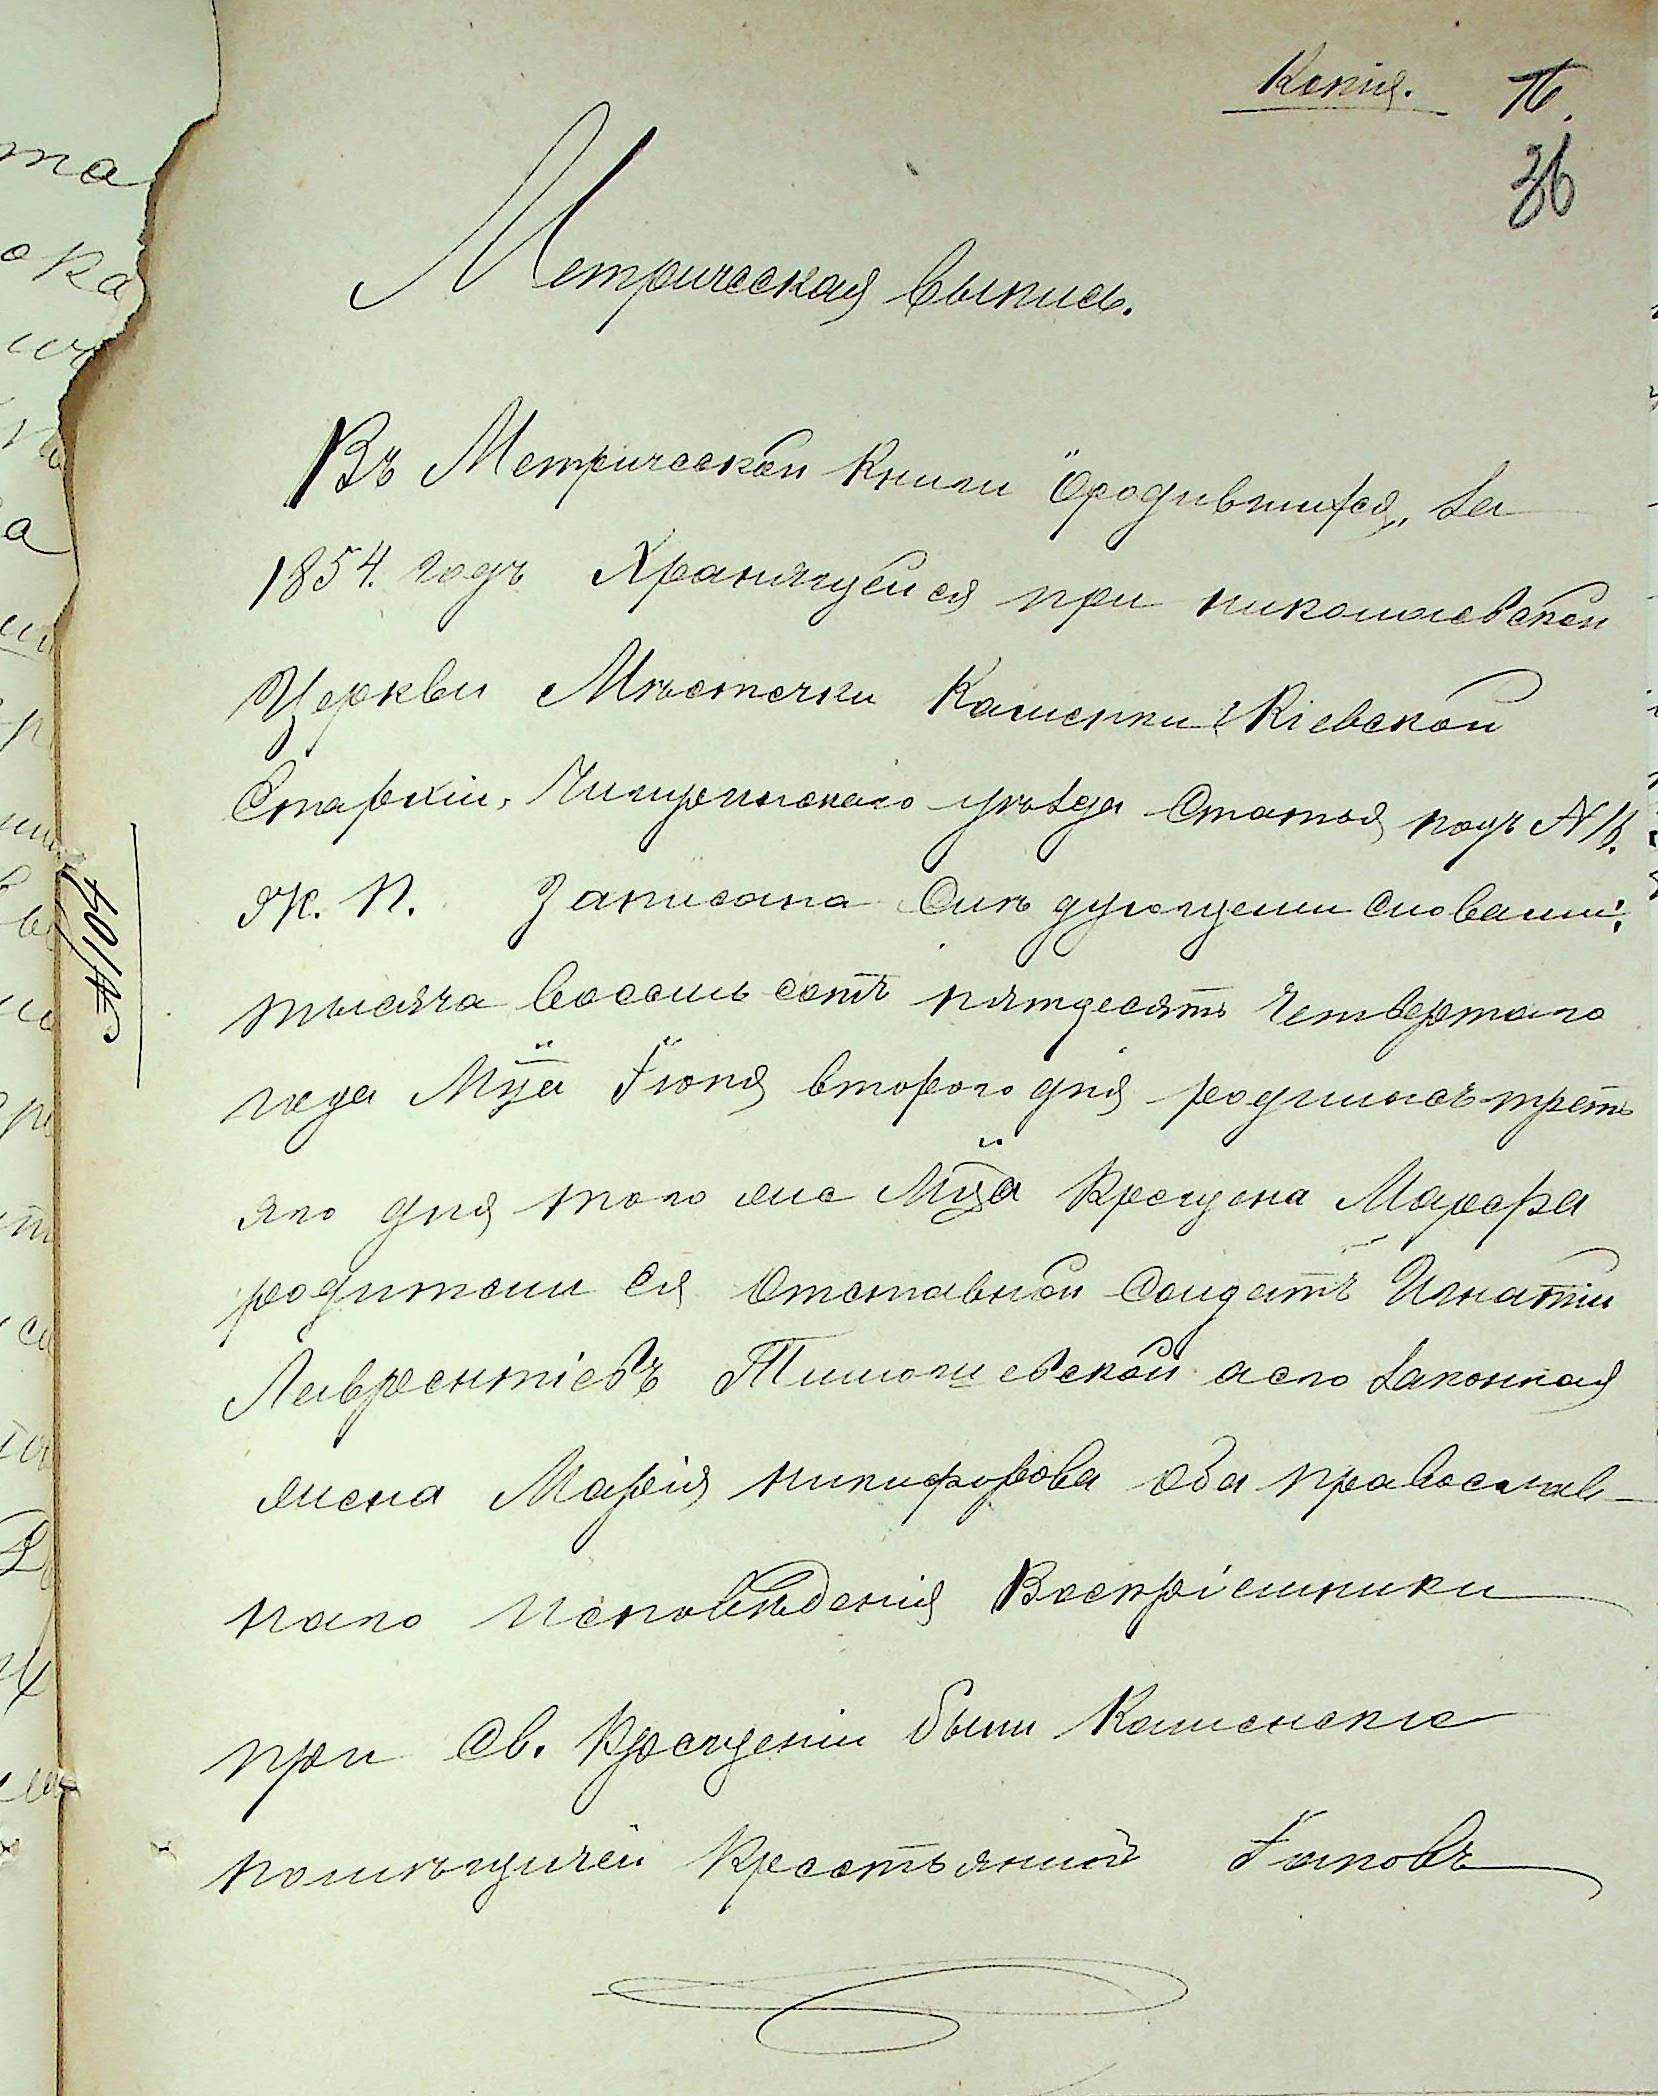 Копія.
36
Метрическая выпись.
Въ Метрической Книги "Ородившихся" За
1854. годъ Хранящейся при николаевской
Церкви Мѣстечки Каменки Кіевской
Епархіи, Чигиринскаго уѣзда Статья подъ N 16.
ж. п. Записана Симъ дующеми словами:
тысяча восемь сотъ пятдесятъ Четвертаго
года М̃ца Іюня второго дня родилась трет
яго дня того же М̃ца Крещена Марфа
родители Ея Отставной Солдатъ Игнатій
Лаврентіевъ Тимошевской аего Законная
жена Марія никифорова оба православ-
наго исповѣданія Воспріемники
при Св. Крещеніи были Каменскіе
помѣщичей Крестьянинъ Іаковъ
№ 104